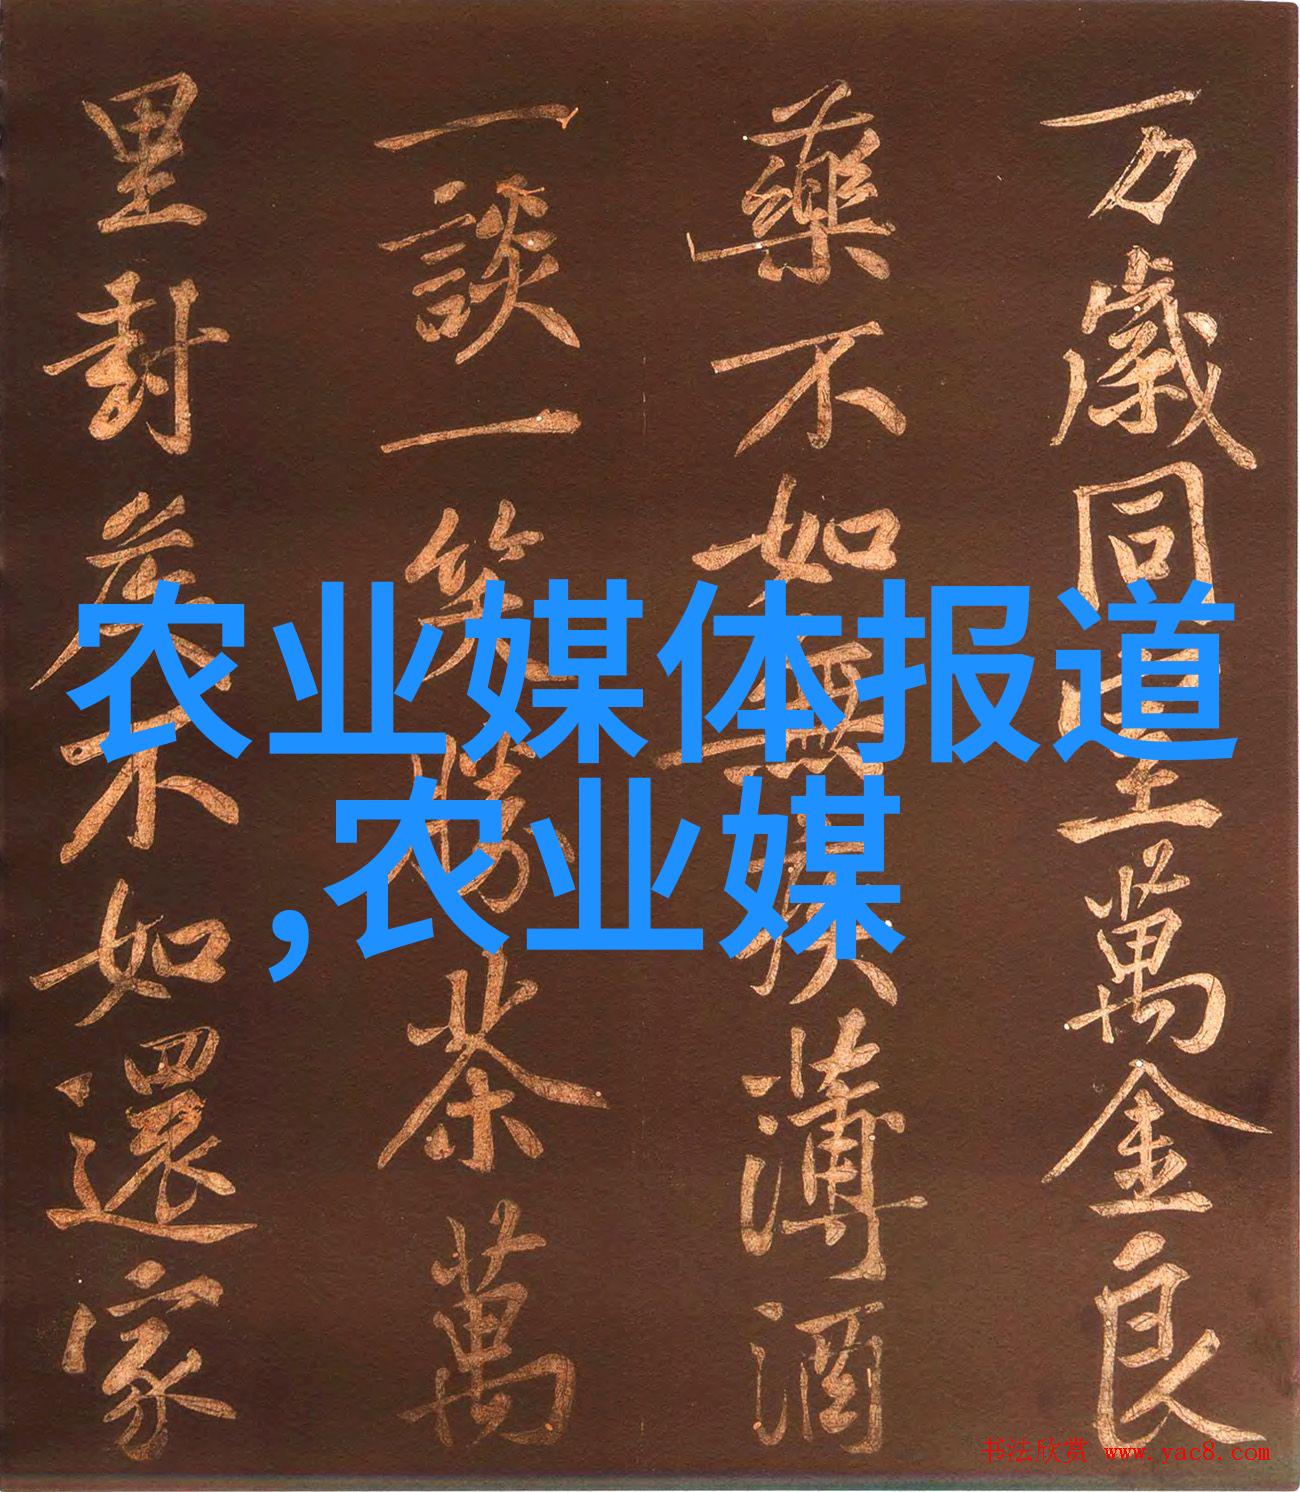 万歲同萬金良
藥不如無疾薄酒
一談一笑勝茶萬
里封侯不如還家
农业媒体报道
,农业媒
书法欣赏 www.yac8.com